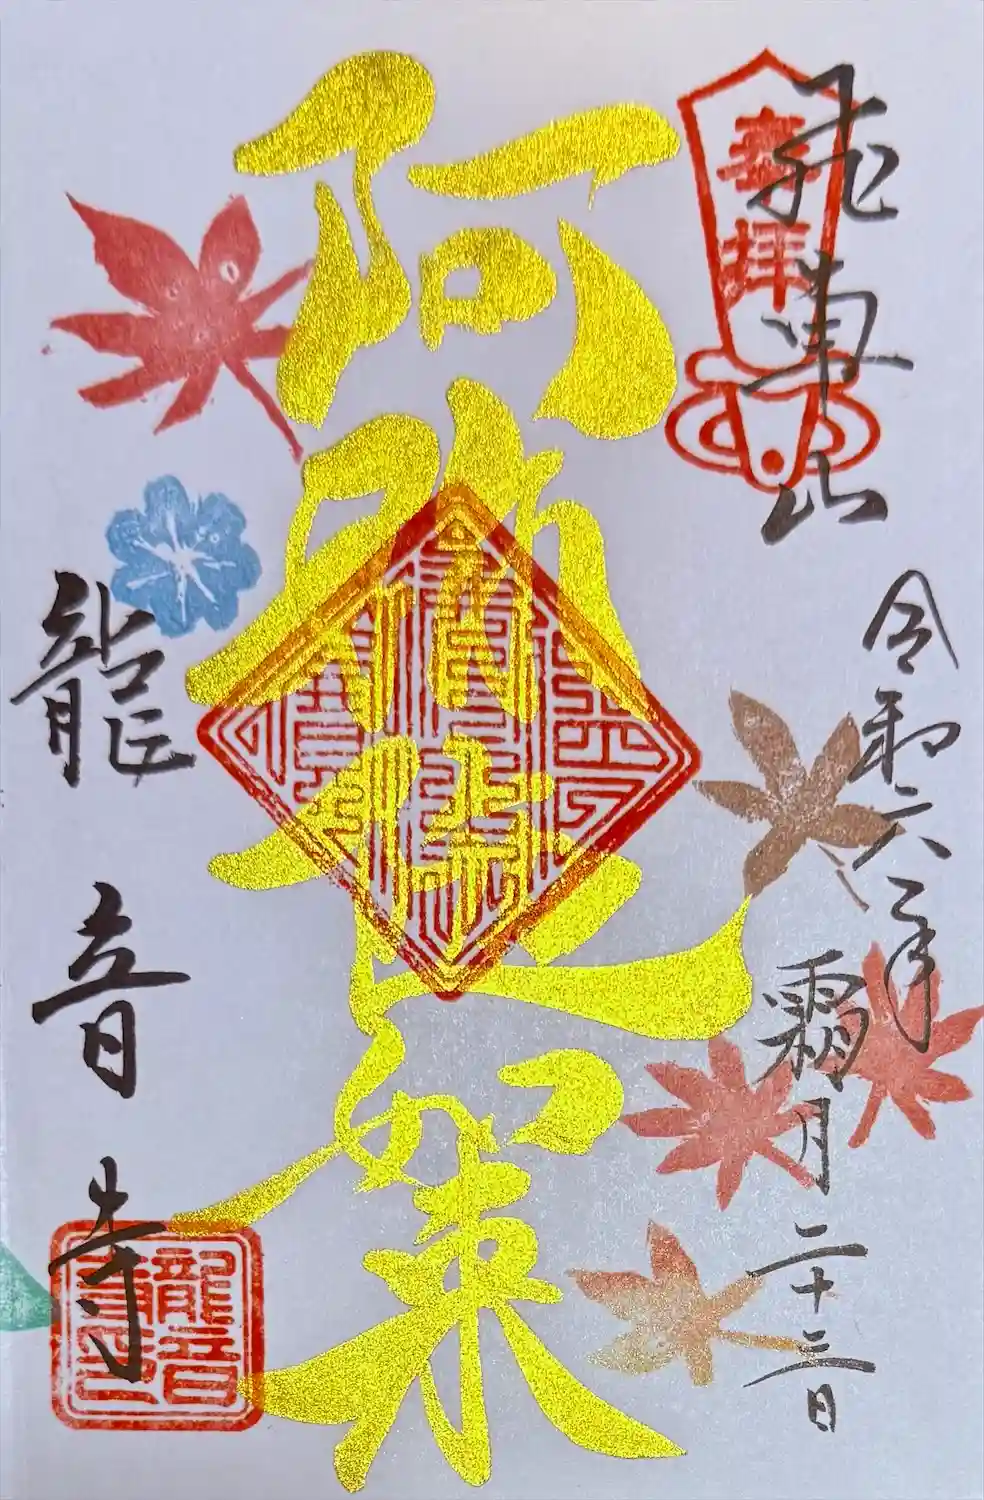 奉拝
飛車山
令和六年
霜月二十三日
阿弥陀如来
龍音寺